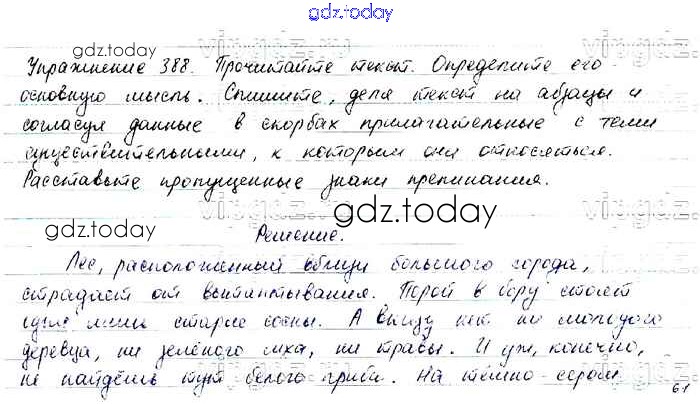 gdz.today
gdz.today
Упражнение 388. Прочитайте текст. Определите его
основную мысль. Спишите, деля текст на абзацы и
согласуя данные в скорбах прилагательные с теми
существительными, к которым они относятся.
Расставьте пропущенные знаки препинания.
gdz.today
gdz.today
Решение.
Лес, расположенный вблизи большого города,
страдает от вытаптывания. Порой в бору стоят
одни лишь старые сосны. А внизу нет ни молодого
деревца, ни зелёного мха, ни травы. И уж, конечно,
не найдёшь тут белого гриба. На тёмно-сером
gdz.today
gdz.today
61